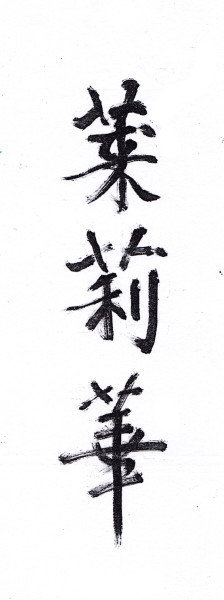 茉莉華